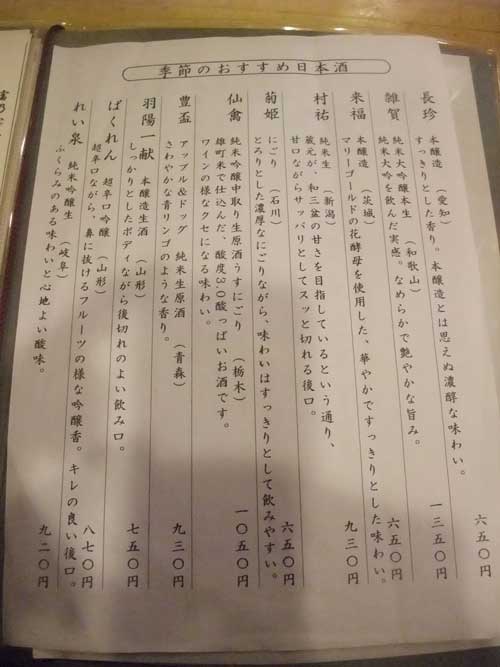 季節のおすすめ日本酒
長珍 本醸造 (愛知)
すっきりとした香り。本醸造とは思えぬ濃醇な味わい。
五〇円
雑賀 純米大吟醸本生 (和歌山)
純米大吟を飲んだ実感。なめらかで艶やかな旨み。
一三五〇円
来福 本醸造 (茨城)
マリーゴールドの花酵母を使用した、華やかですっきりとした味わい。
六五〇円
村祐 純米生 (新潟)
蔵元が、和三盆の甘さを目指しているという通り、
甘口ながらサッパリとしてスッと切れる後口。
九三〇円
菊姫 にごり (石川)
とろりとした濃厚なにごりながら、味わいはすっきりとして飲みやすい。
六五〇円
仙禽 純米吟醸中取り生原酒うすにごり (栃木)
雄町米で仕込んだ、酸度3.0酸っぱいお酒です。
ワインの様なクセになる味わい。
一〇五〇円
豊盃 アップル&ドッグ 純米生原酒 (青森)
さわやかな青リンゴのような香り。
九三〇円
羽陽一献 本醸造生酒 (山形)
しっかりとしたボディながら後切れのよい飲み口。
七五〇円
ばくれん 超辛口吟醸 (山形)
超辛口ながら、鼻に抜けるフルーツの様な吟醸香。キレの良い後口。
八七〇円
れい泉 純米吟醸生 (岐阜)
ふくらみのある味わいと心地よい酸味。
九二〇円